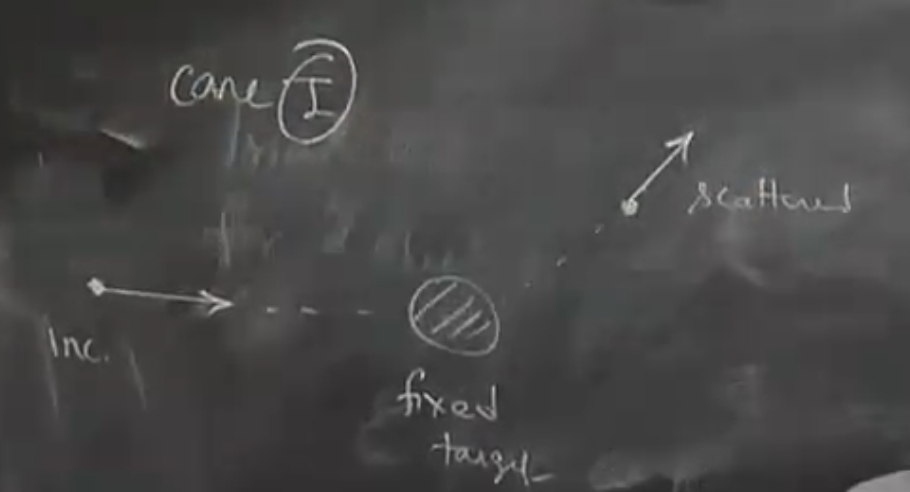 Case I
scattered
Inc.
fixed
target